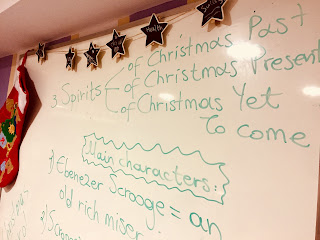 Health
of Christmas Past
3 Spirits of Christmas Present
of Christmas Yet
To come
Main characters:
1) Ebenezer Scrooge = an
old rich miser
2) Scroo